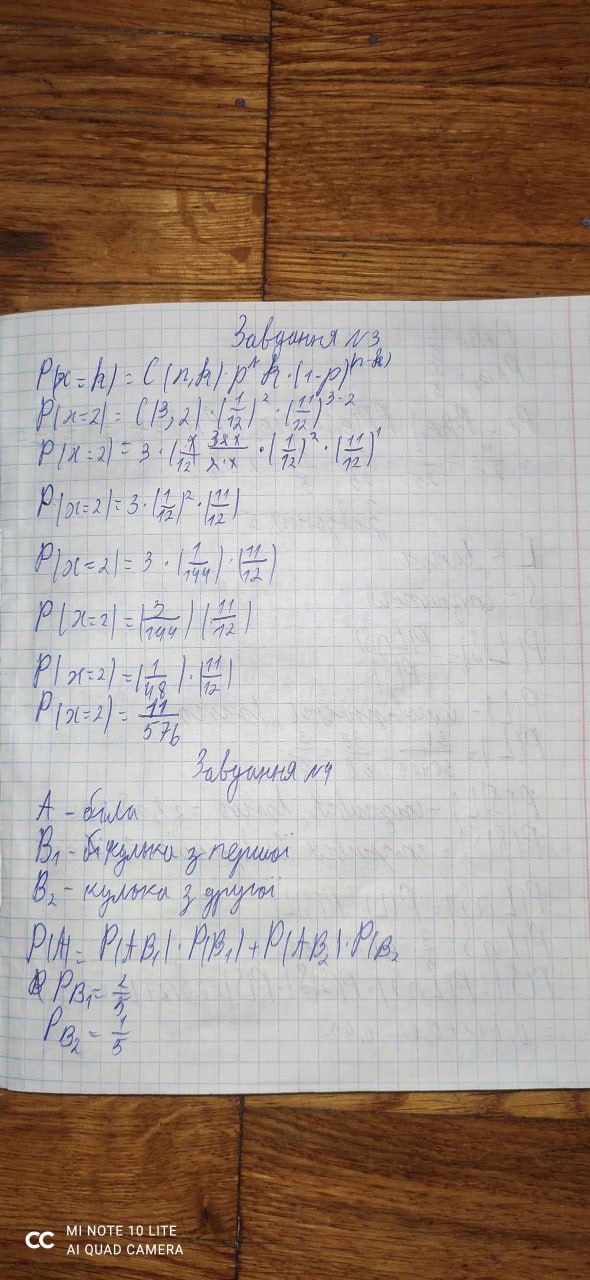 Завдання №3
P(x=k) = C(n,k)·p^k·(1-p)^(n-k)
P(x=2) = C(3,2)·(1/12)^2·(11/12)^3-2
P(x=2) = 3·(1/12 3·2·1/2·1·(1/12)^2·(11/12)^1
P(x=2)=3·(1/12)^2·(11/12)
P(x=2)=3·(1/144)·(11/12)
P(x=2)=(3/144)(11/12)
P(x=2)=(1/48)·(11/12)
P(x=2)=11/576
Завдання №4
A - біла
B₁ - кулька з першої
B₂ - кулька з другої
P(A)= P(AB₁)·P(B₁)+P(AB₂)·P(B₂
P B₁= /5
P B₂ = 1/5
MI NOTE 10 LITE
AI QUAD CAMERA